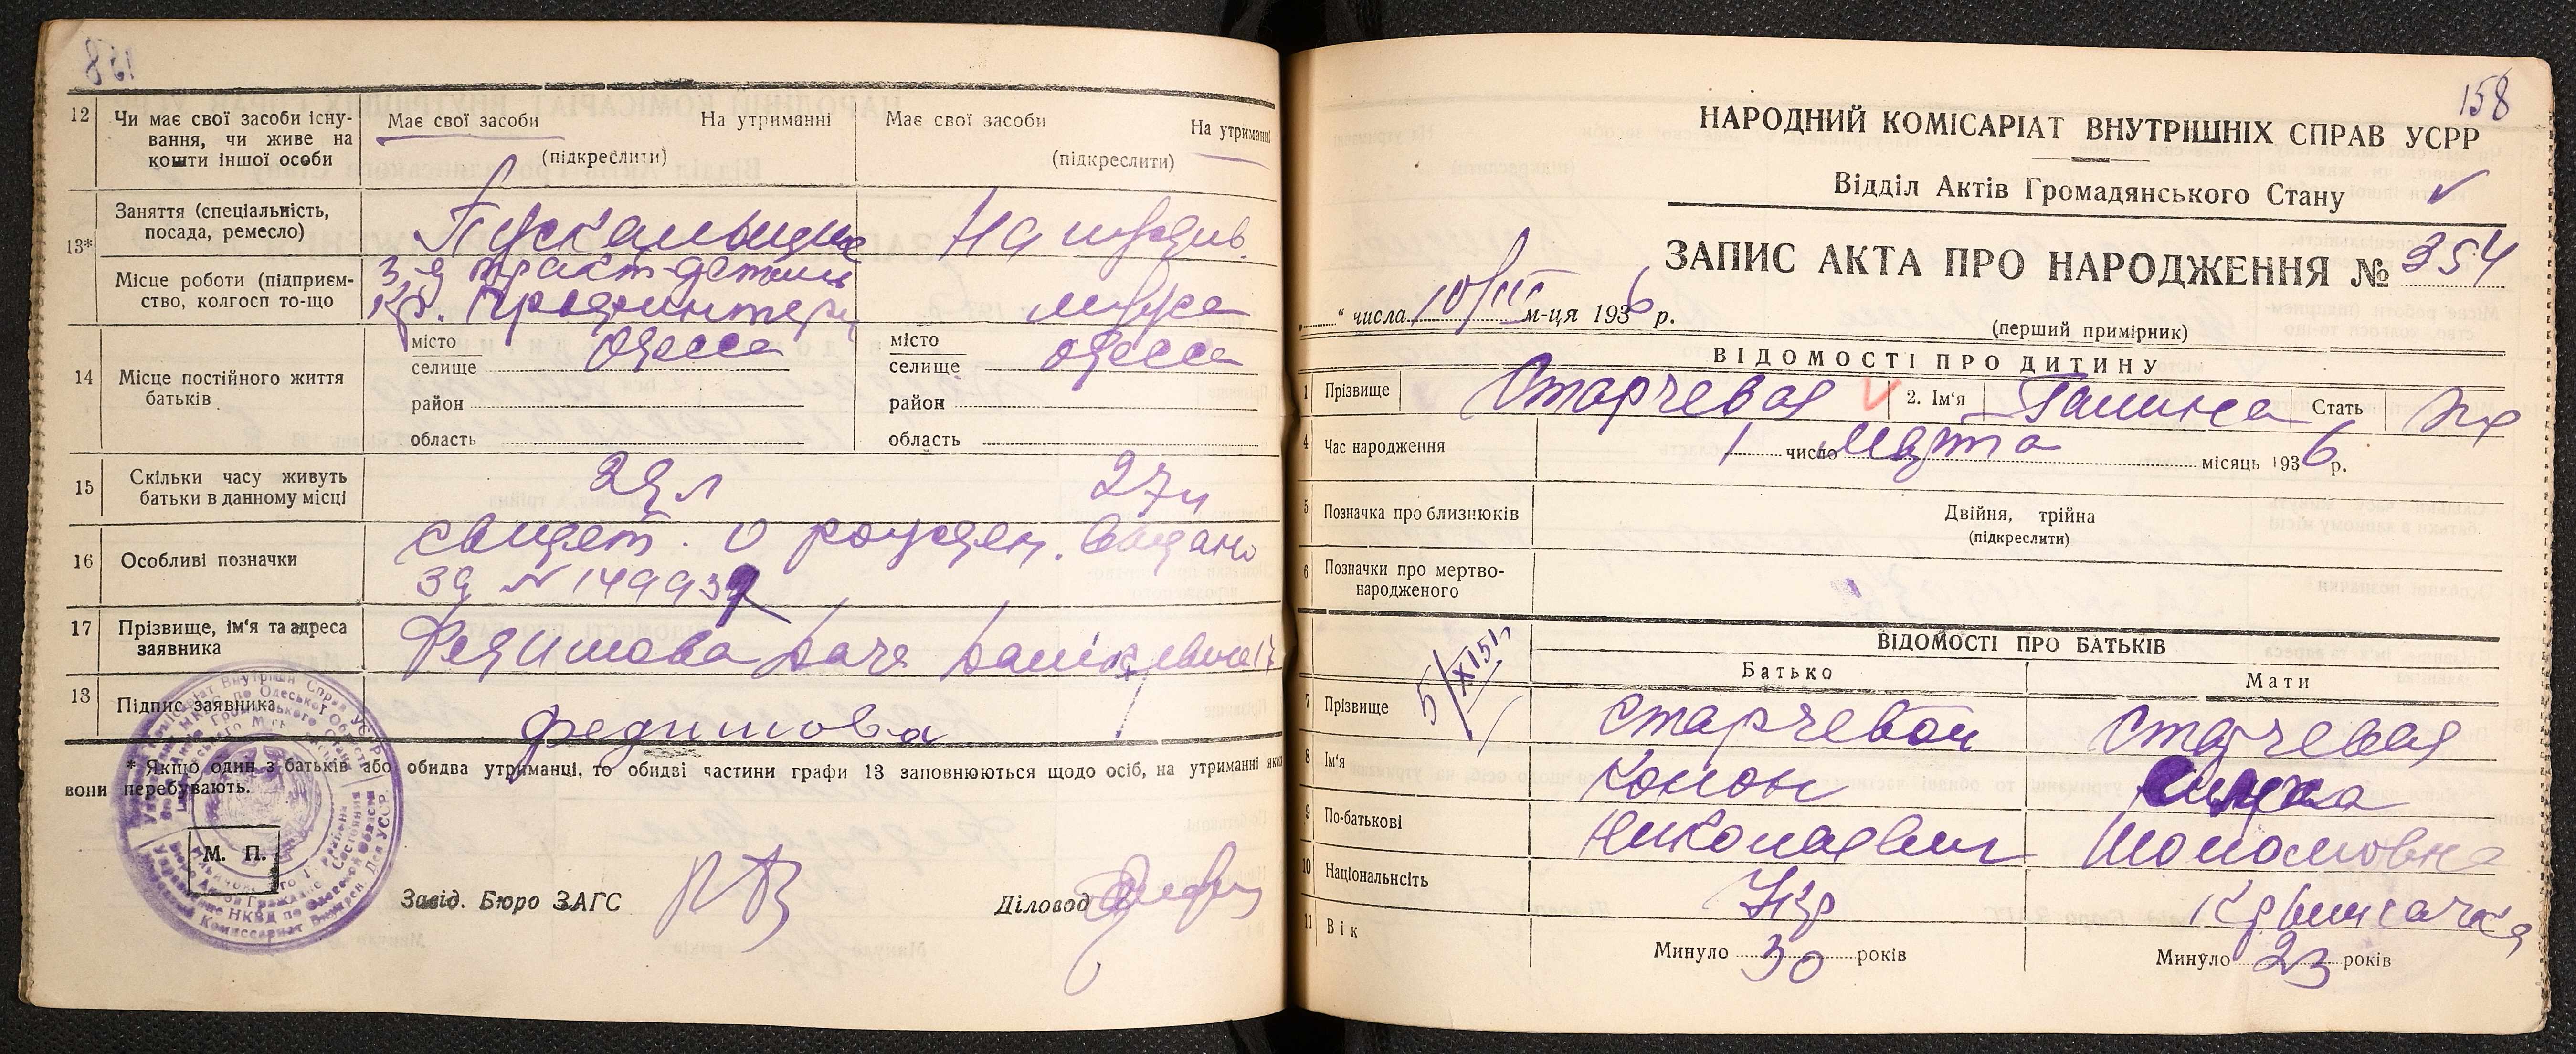 12 Чи має свої засоби існу-
вання, чи живе на
кошти іншої особи
Має свої засоби На утриманні
(підкреслити)
Має свої засоби На утриманні
(підкреслити)
13*
Заняття (спеціальність,
посада, ремесло)
На иждив.
Місце роботи (підприєм-
ство, колгосп то-що
мужа
14 Місце постійного життя
батьків
місто Одесса
селище
район
область
місто Одесса
селище
район
область
15 Скільки часу живуть
батьки в данному місці
27
16 Особливі позначки
свидет. о рожден. выдано
за №
17 Прізвище, ім'я та адреса
заявника
13 Підпис заявника
Федимова
* Якщо один з батьків або обидва утриманці, то обидві частини графи 13 заповнюються щодо осіб, на утриманні яких
вони перебувають.
М. П.
Завід. Бюро ЗАГС
Діловод
158
НАРОДНИЙ КОМІСАРІАТ ВНУТРІШНІХ СПРАВ УСРР
Відділ Актів Громадянського Стану
ЗАПИС АКТА ПРО НАРОДЖЕННЯ № 354
„ “ числа 10/III м-ця 1936 р.
(перший примірник)
ВІДОМОСТІ ПРО ДИТИНУ
1 Прізвище Старчевая 2. Ім'я Галина Стать
4 Час народження 1 число Марта місяць 1936 р.
5 Позначка про близнюків Двійня, трійна
(підкреслити)
6 Позначки про мертво-
народженого
ВІДОМОСТІ ПРО БАТЬКІВ
Батько Мати
7 Прізвище Старчевой Старчевая
8 Ім'я Конон
9 По-батькові Николаевич Шоломовна
10 Національність Укр Крымчачка
11 Вік Минуло 30 років Минуло 23 років